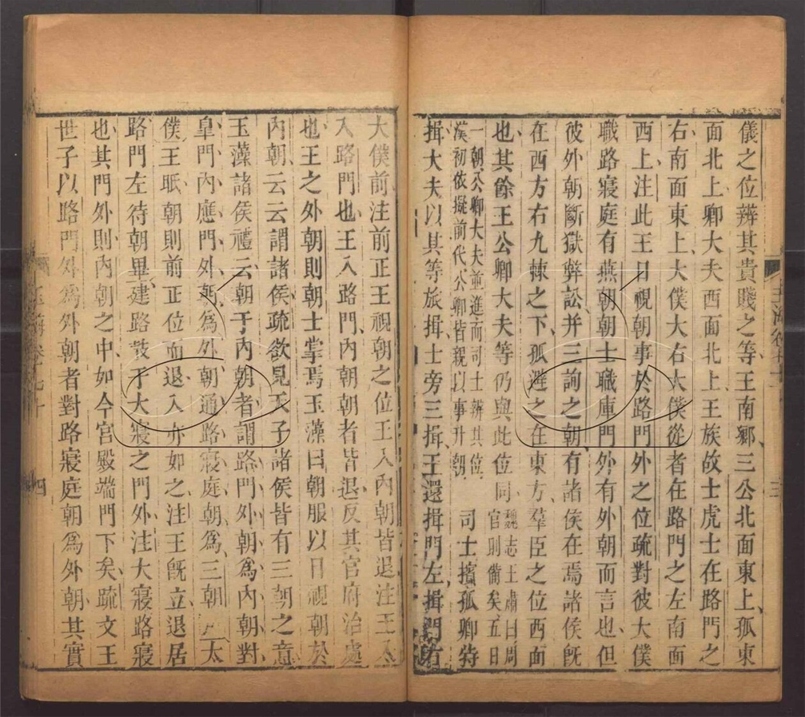 儀之位辨其貴賤之等王南鄉三公北面東上孤東
面北上卿大夫西面北上王族故士虎士在路門之
右南面東上大僕大右大僕從者在路門之左南面
西上注此王日視朝事於路門外之位疏對彼大僕
職路寢庭有燕朝朝士職庫門外有外朝而言也但
彼外朝斷獄弊訟并三詢之朝有諸侯在焉諸侯旣
在西方右九棘之下孤避之在東方羣臣之位西面
也其餘王公卿大夫等仍與此位同
魏志王肅曰周
官則備矣五日
一朝公卿大夫並進而司士辨其位
漢初依擬前代公卿皆親以事升朝
司士擯孤卿特
揖大夫以其等旅揖士旁三揖王還揖門左揖門右
大僕前注前正王視朝之位王入內朝皆退注王
入路門也王入路門內朝朝者皆退反其官府治處
也王之外朝則朝士掌焉玉藻曰朝服以日視朝於
內朝云云謂諸侯疏欲見天子諸侯皆有三朝之意
玉藻諸侯禮云朝于內朝者謂路門外朝爲內朝對
皐門內應門外朝爲外朝通路寢庭朝爲三朝
太
僕王眡朝則前正位而退入亦如之注王旣立退居
路門左待朝畢建路鼓于大寢之門外注大寢路寢
也其門外則內朝之中如今宮殿端門下矣疏文王
世子以路門外爲外朝者對路寢庭朝爲外朝其實
玉海卷
四